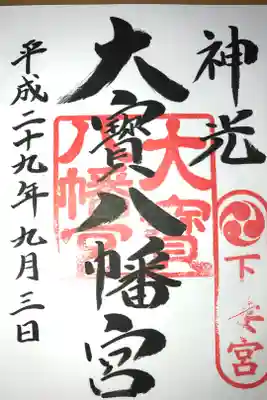 神光
下 宮
大寳八幡宮
大寳
八幡宮
平成二十九年九月三日